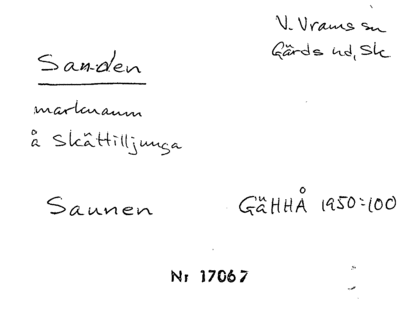 V. Vrams sn
Gärds hd, Sk
Sanden
marknamn
å Skättilljunga
Saunen GäHHÅ 1950:100
Nr 17067